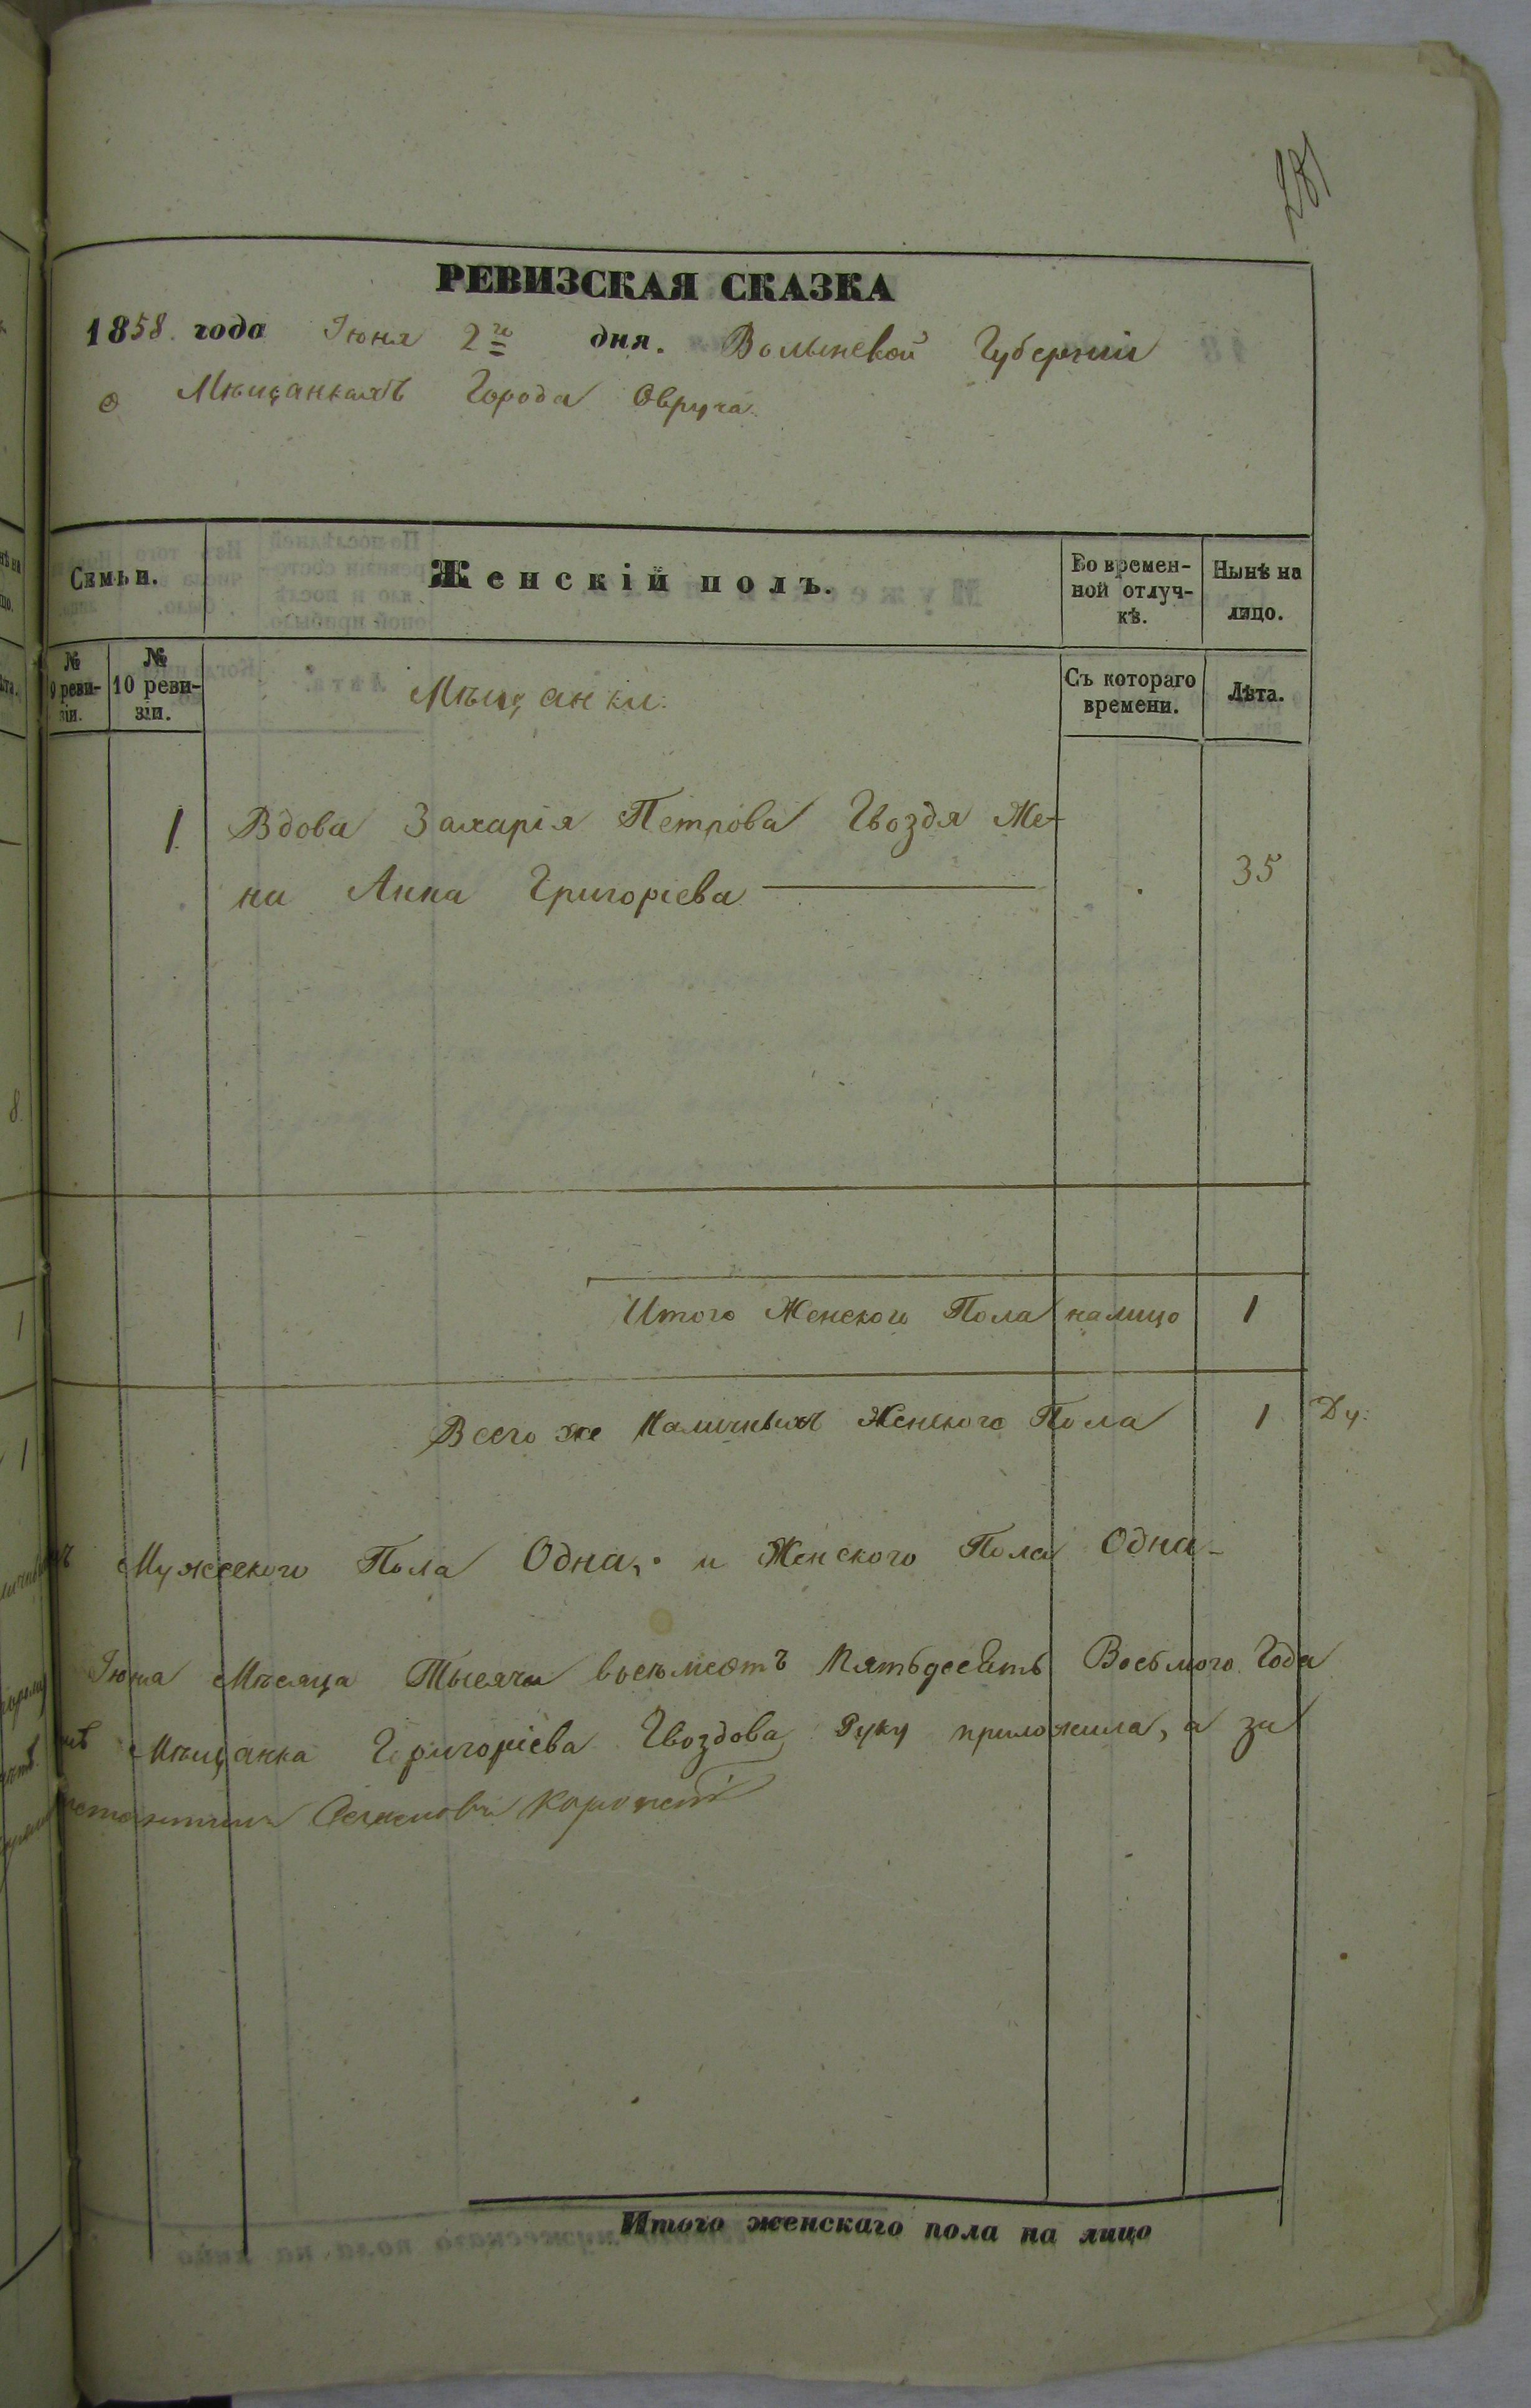 281
РЕВИЗСКАЯ СКАЗКА
1858. года Іюня 2го дня. Волынской Губерніи
о Мѣщанкахъ Города Овруча.
Семьи.
Женскій полъ.
Во времен-
ной отлуч-
кѣ.
Нынѣ на
лицо.
№
9 реви-
зіи.
№
10 реви-
зіи.
Мѣщанки.
Съ котораго
времени.
Лѣта.
1 Вдова Захарія Петрова Гвоздя Же-
на Анна Григоріева 35
Итого Женского Пола налицо 1
Всего же Наличныхъ Женского Пола 1 Ду:
Мужеского Пола Одна, и Женского Пола Одна
Іюня Мѣсяца Тысяча восемсотъ Пятьдесятъ Восьмого Года
Мѣщанка Григоріева Гвоздова Руку приложила, а за
Итого женскаго пола на лицо